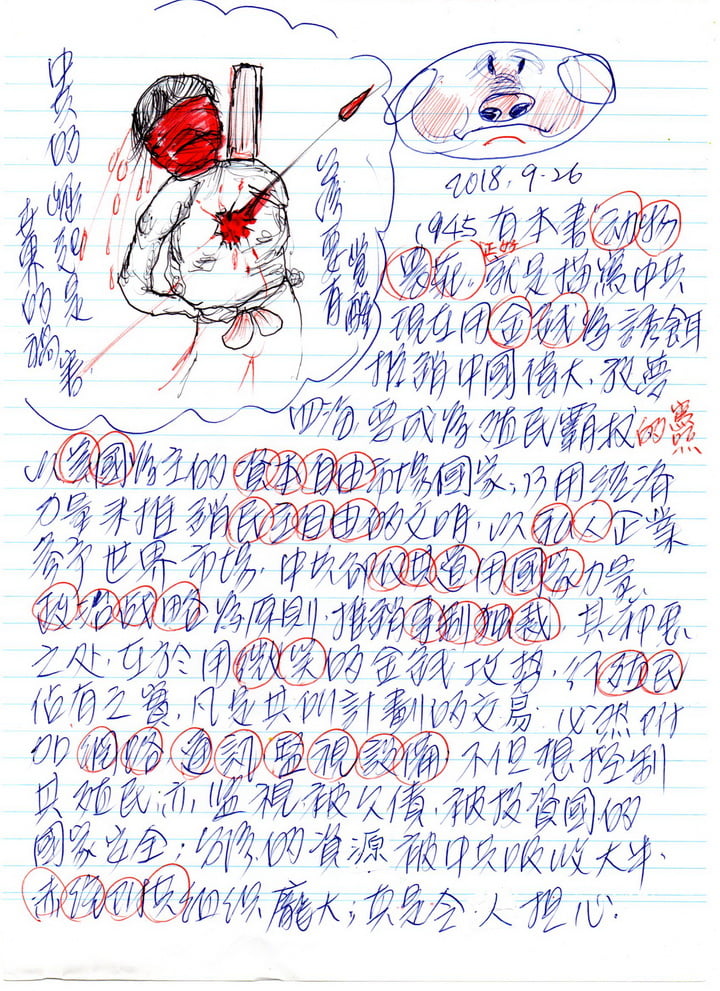 中共的崛起是
世界的禍害
要有覺醒
2018.9-26
1945 有本書 动物
農莊 正好 就是描寫中共
現在用金錢為誘餌
推銷中國偉大, 放夢
四海, 要成為殖民霸权的
以美國為主的資本自由市場國家; 乃用經濟
力量來推銷民主自由的文明, 以私人企業
參予世界市場. 中共卻以其道用國家力量,
政治战略為原則, 推銷專制独裁, 其邪惡
之处, 在於用微笑的金錢攻勢, 行殖民
佔有之實, 凡是共叫計劃的交易, 必然附
加網路 通訊 監視設備, 不但想控制
其殖民, 亦監視被欠債, 被投資國的
國家安全; 台湾的資源被中共吸收大半,
組織龐大; 真是令人担心.